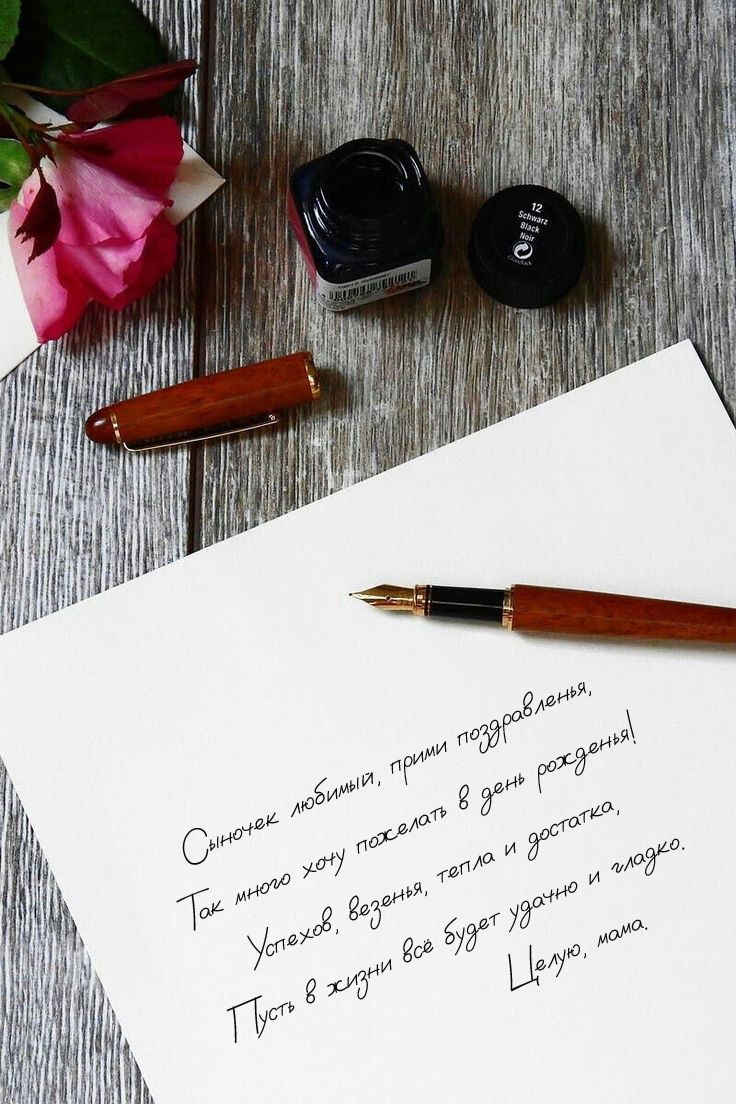 12
Schwarz
Black
Noir
Сыночек любимый, прими поздравленья,
Так много хочу пожелать в день рожденья!
Успехов, везенья, тепла и достатка,
Пусть в жизни всё будет удачно и гладко.
Целую, мама.